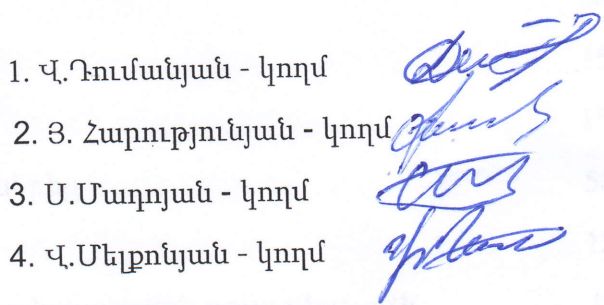 1. Վ.Դումանյան - կողմ
2. Յ. Հարությունյան - կողմ
3. Ս.Մադոյան - կողմ
4. Վ.Մելքոնյան - կողմ